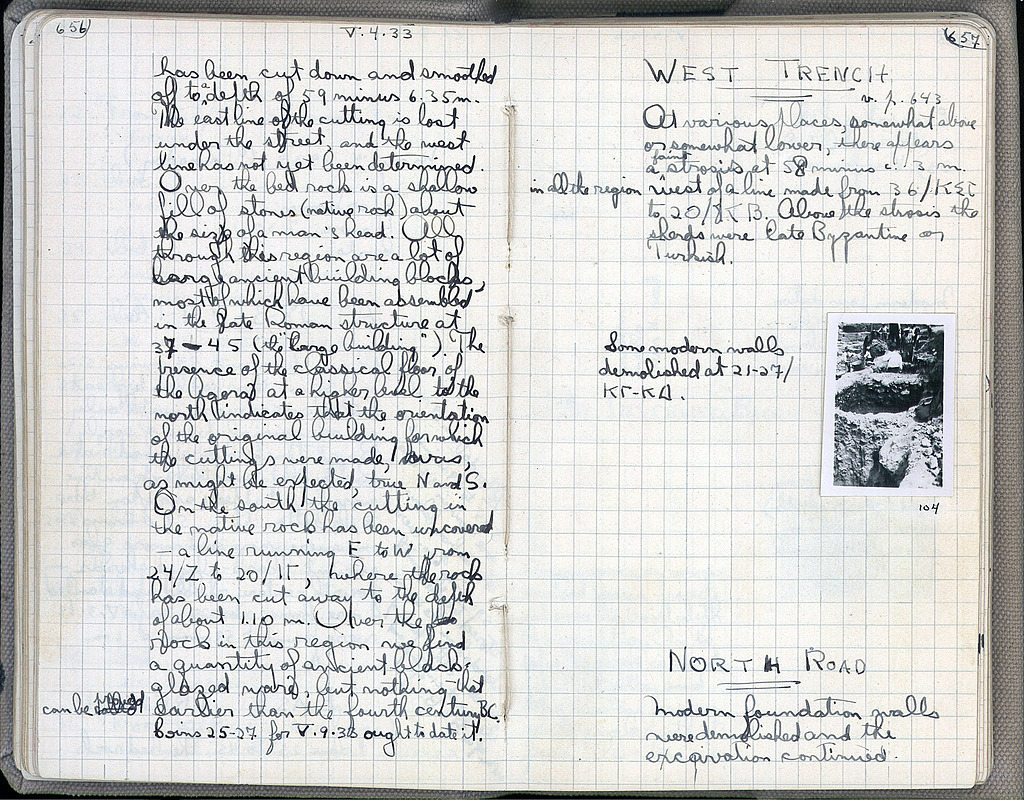 656
V.4.33
has been cut down and smoothed
off to a depth of 59 minus 6.35m.
The east line of the cutting is lost
under the street, and the west
line has not yet been determined.
Over the bed rock is a shallow
fill of stones (native rock) about
the size of a man's head. All
through this region are a lot of
large ancient building blocks,
most of which have been assembled
in the late Roman structure at
37-45 (the "large building"). The
presence of the classical floor of
the Agora at a higher level to the
north indicates that the orientation
of the original building for which
the cuttings were made, was,
as might be expected, true N and S.
On the south the cutting in
the native rock has been uncovered
- a line running E to W from
24/Z to 20/IΓ, where the rock
has been cut away to the depth
of about 1.10 m. Over the
rock in this region we find
a quantity of ancient black-
glazed ware, but nothing that
can be
earlier than the fourth century BC.
Coins 25-27 for V.9.33 ought to date it.
657
WEST TRENCH
v. p. 643
At various places, somewhat above
or somewhat lower, there appears
a faint strosis at 58 minus c. 3 m.
in all the region west of a line made from 36/
to 20/KB. Above the strosis the
sherds were late Byzantine or
Turkish.
Some modern walls
demolished at 21-27/
KΓ-KΔ.
104
NORTH ROAD
Modern foundation walls
were demolished and the
excavation continued.